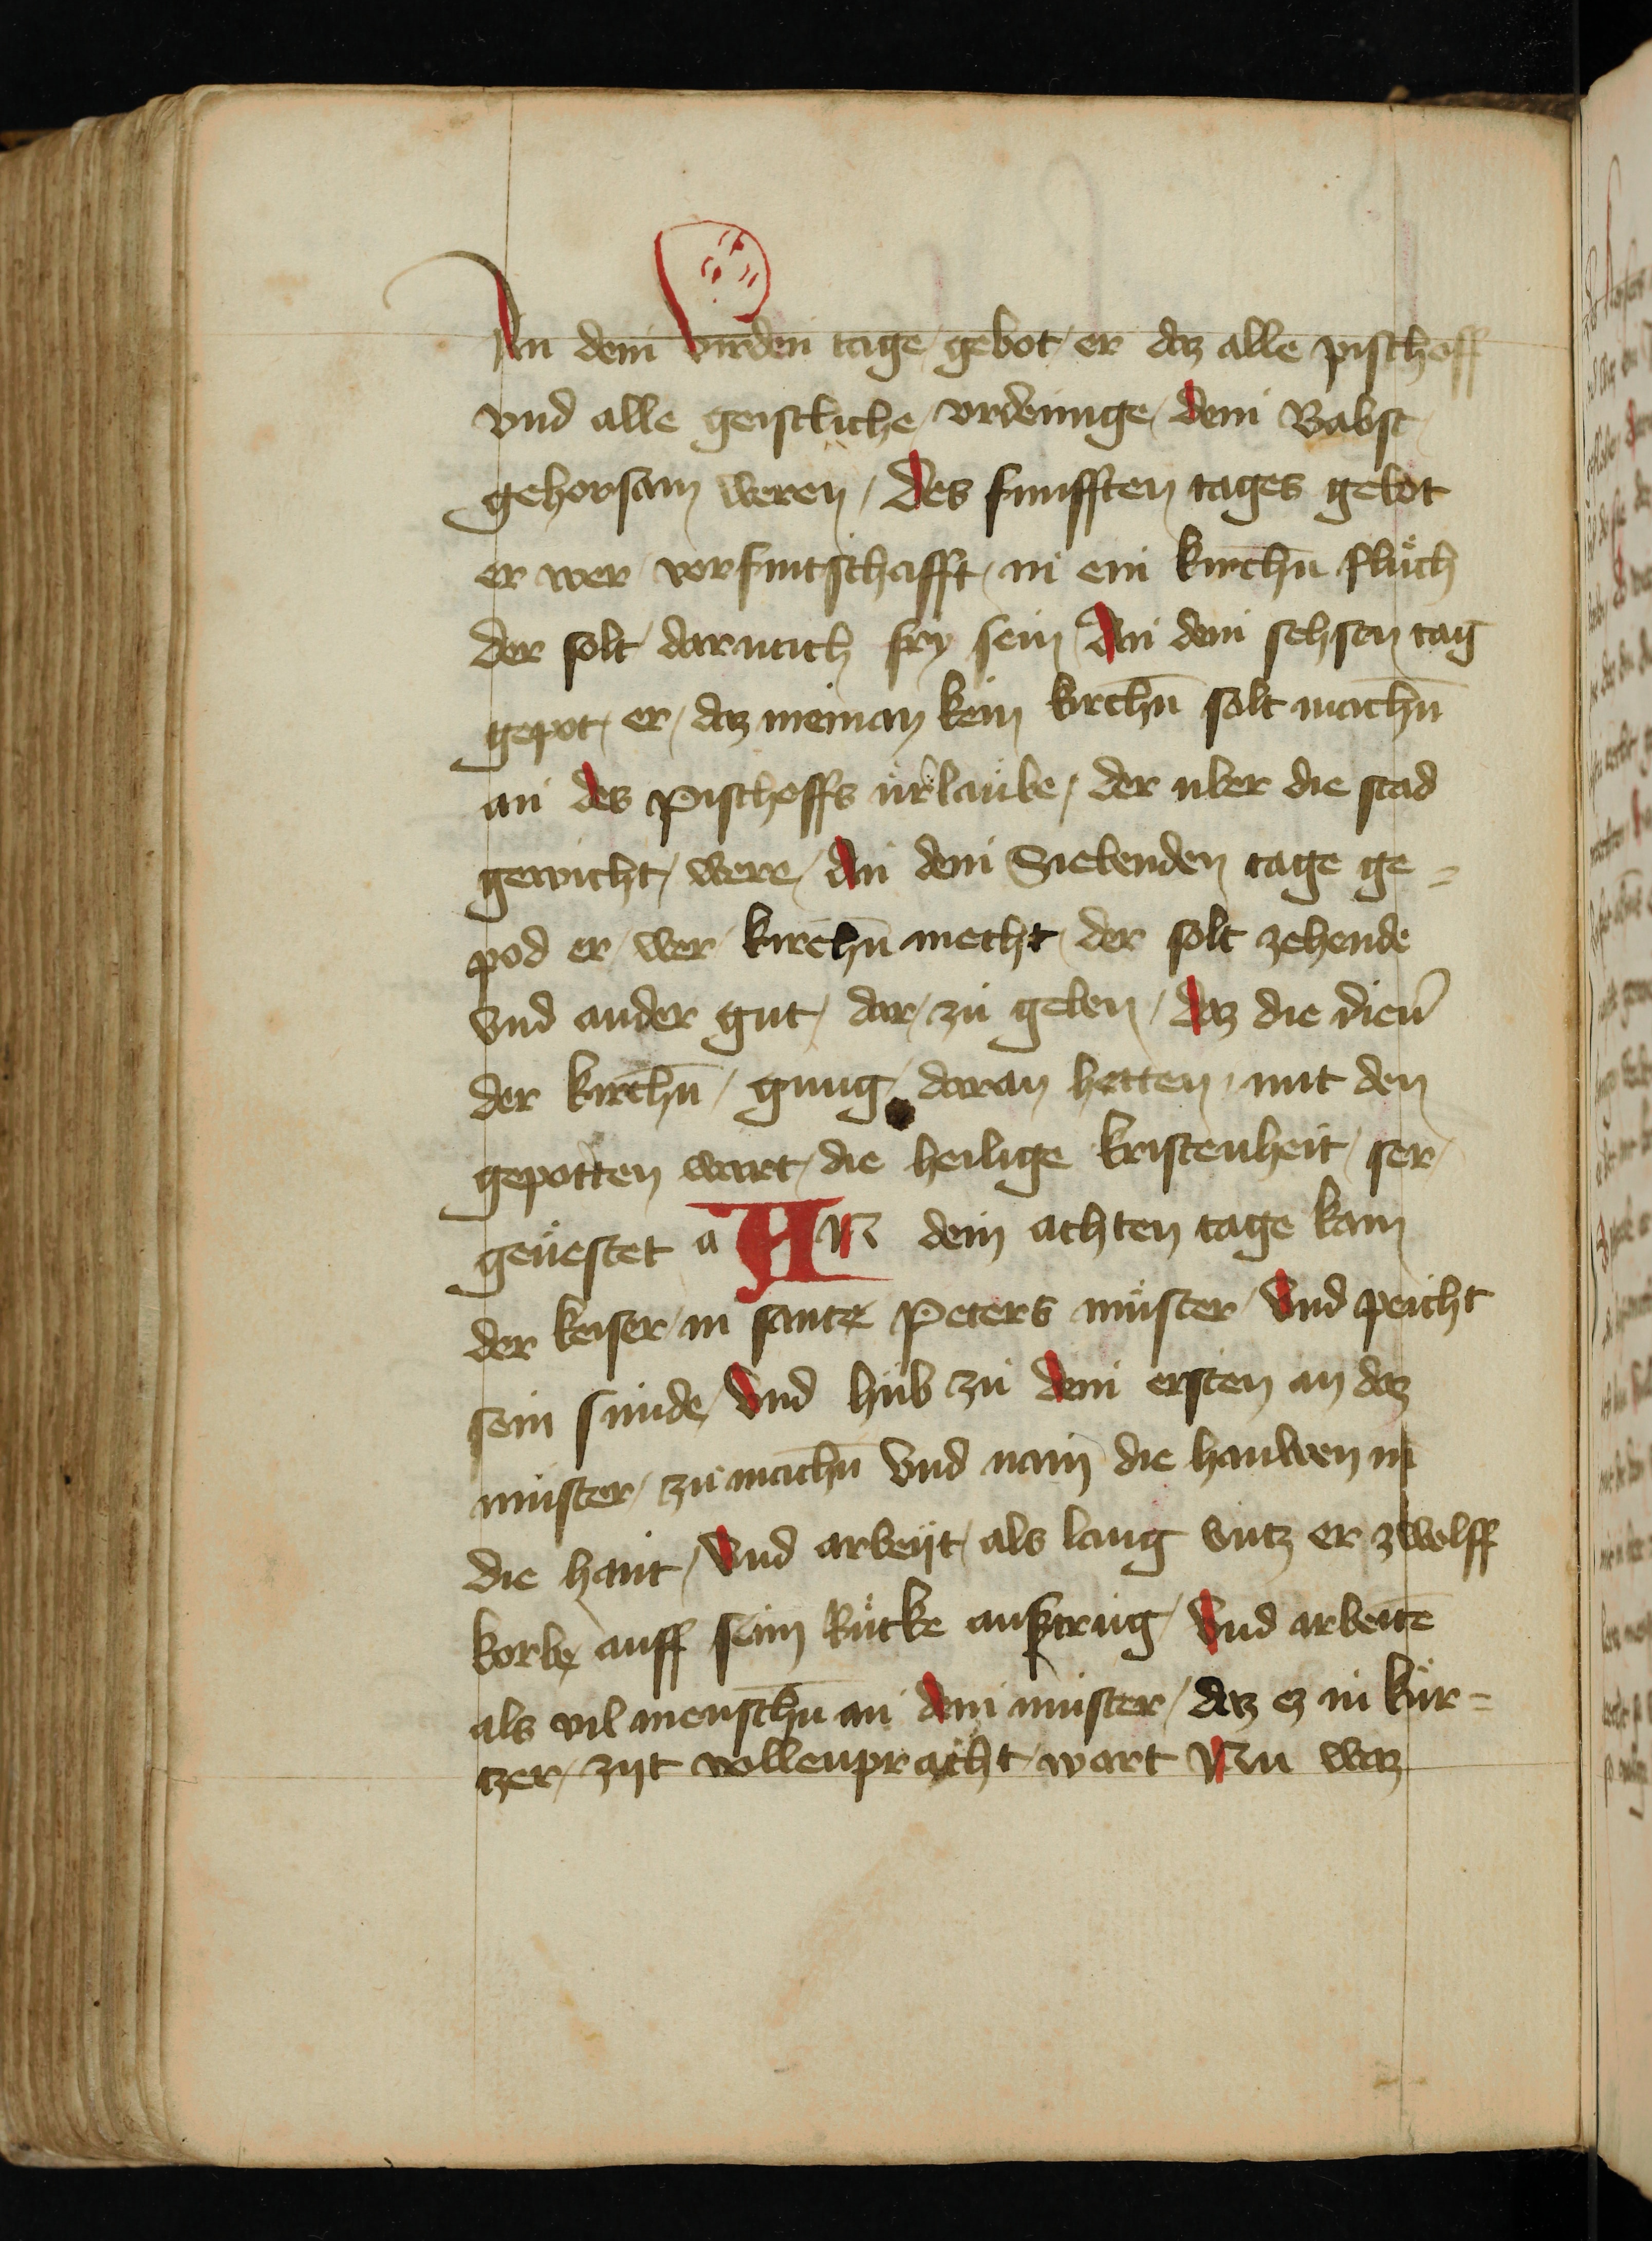 An dem virden tage gebot er daz alle pischoff
vnd alle geistliche ordenunge dem Babst
gehorsam weren / Des funfften tages gebot
er wer vorfintschafft in ein kirchn̄ fluͦch
der solt darnach fry sein An dem sehsen tag
gepot er / daz nieman kein kirchn̄ solt machn̄
an des pischoffs uͦrlaube / der uber die stad
gewicht were / An dem Siebenden tage ge=
pod er / wer kirchn̄ mecht der solt zehende
vnd ander gut / dar zu geben / daz die dien̄
der kirchn̄ / gnug daran hetten / mit den
gepotten wart / die heilige kristenheit / ser
geuestet a AN dem achten tage kam
der keiser / in sante Peters muͤster / Vnd peicht
sein sunde / Vnd hub zu dem ersten an daz
muster / zu machn̄ Vnd nam die hauwen in
die hant / Vnd arbeyt / als lang vntz er zwolff
korbe auff seim Ruͤcke austrug / Vnd arbeitē
als vil menschn̄ an dem muster / daz ez in kuͤr=
tzer / zijt vollenpracht wart Nu waz